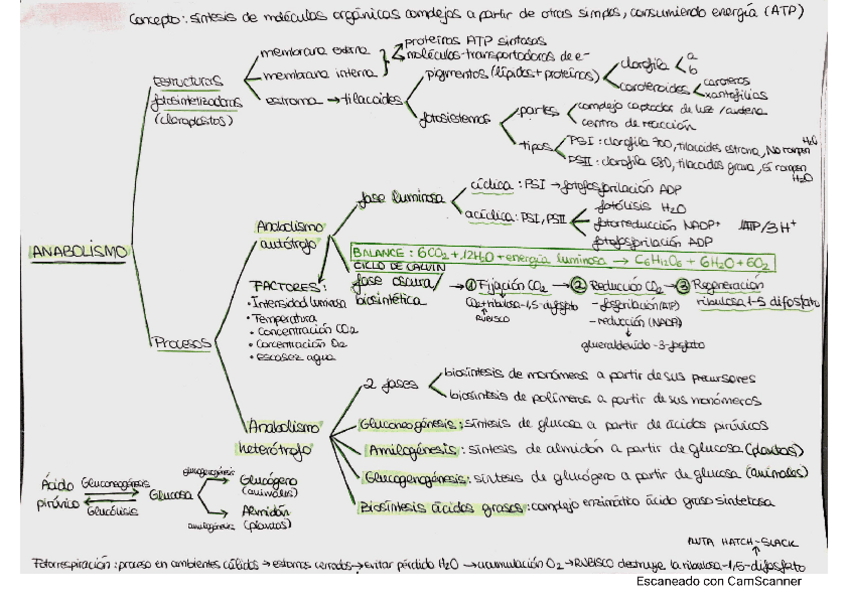 Concepto: síntesis de moléculas orgánicas complejas a partir de otras simples, consumiendo energía (ATP)
membrana externa
membrana interna
proteínas ATP sintasas
moléculas transportadoras de e-
Estructuras
fotosintetizadoras
(cloroplastos)
estroma → tilacoides
pigmentos (lípidos + proteínas)
clorofila
a
b
carotenoides
carotenos
xantofilias
fotosistemas
partes
complejo captador de luz / antena
centro de reacción
tipos
PSI: clorofila 700, tilacoides estroma, No rompen H2O
PSII: clorofila 680, tilacoides grana, Sí rompen H2O
ANABOLISMO
Procesos
Anabolismo
autótrofo
fase luminosa
cíclica: PSI → fotofosforilación ADP
acíclica: PSI, PSII
fotólisis H2O
fotorreducción NADP+
1ATP/3H+
fotofosforilación ADP
BALANCE: 6CO2 + 12H2O + energía luminosa → C6H12O6 + 6H2O + 6O2
CICLO DE CALVIN
fase oscura/
biosintética
→ ① Fijación CO2 → ② Reducción CO2 → ③ Regeneración
ribulosa 1-5 difosfato
CO2 + ribulosa-1,5-difosfato
RUBISCO
- fosforilación (ATP)
- reducción (NADP)
glueraldehido-3-fosfato
FACTORES:
• Intensidad luminosa
• Temperatura
• Concentración CO2
• Concentración O2
• escasez agua
Anabolismo
heterótrofo
2 fases
biosíntesis de monómeros a partir de sus precursores
biosíntesis de polímeros a partir de sus monómeros
Gluconeogénesis: síntesis de glucosa a partir de ácidos pirúvicos
Amilogénesis: síntesis de almidón a partir de glucosa (plantas)
Glucogenogénesis: síntesis de glucógeno a partir de glucosa (animales)
Biosíntesis ácidos grasos: complejo enzimático ácido graso sintetasa
Ácido
pirúvico
Gluconeogénesis
Glucólisis
Glucosa
glucogenogénesis
Glucógeno
(animales)
amilogénesis
Almidón
(plantas)
RUTA HATCH-SLACK
Fotorrespiración: proceso en ambientes cálidos → estomas cerrados → evitar pérdida H2O → acumulación O2 → RUBISCO destruye la ribulosa-1,5-difosfato
Escaneado con CamScanner